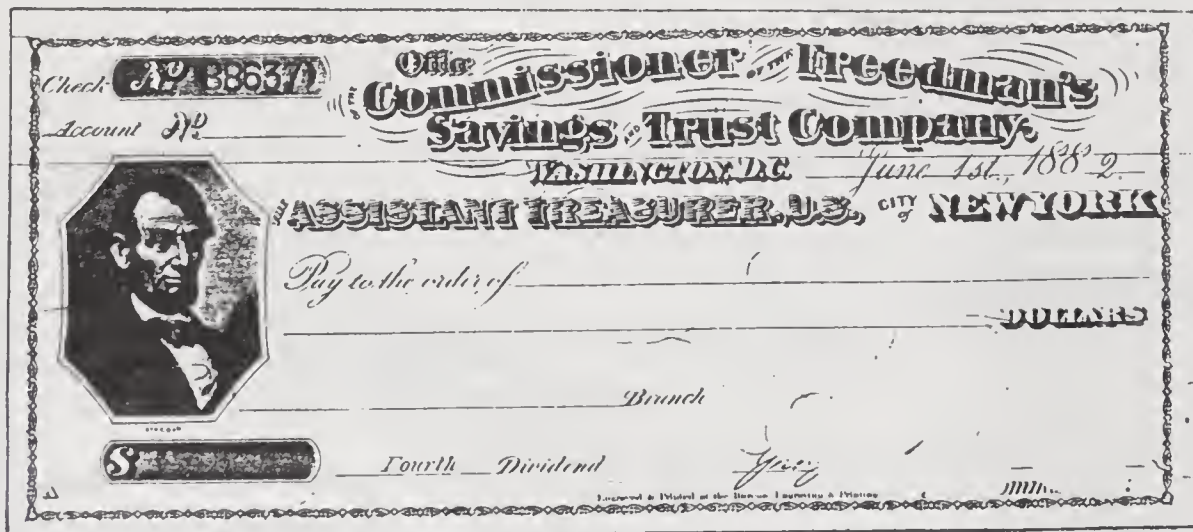 Check No 38637
Account No
Office
OF THE Commissioner OF THE Freedman's
Savings AND Trust Company,
WASHINGTON, D.C. June 1st, 1882.
THE ASSISTANT TREASURER, U.S., CITY of NEW YORK
Pay to the order of
DOLLARS
Branch
LINCOLN
$
Fourth Dividend
Engraved & Printed at the Bureau Engraving & Printing